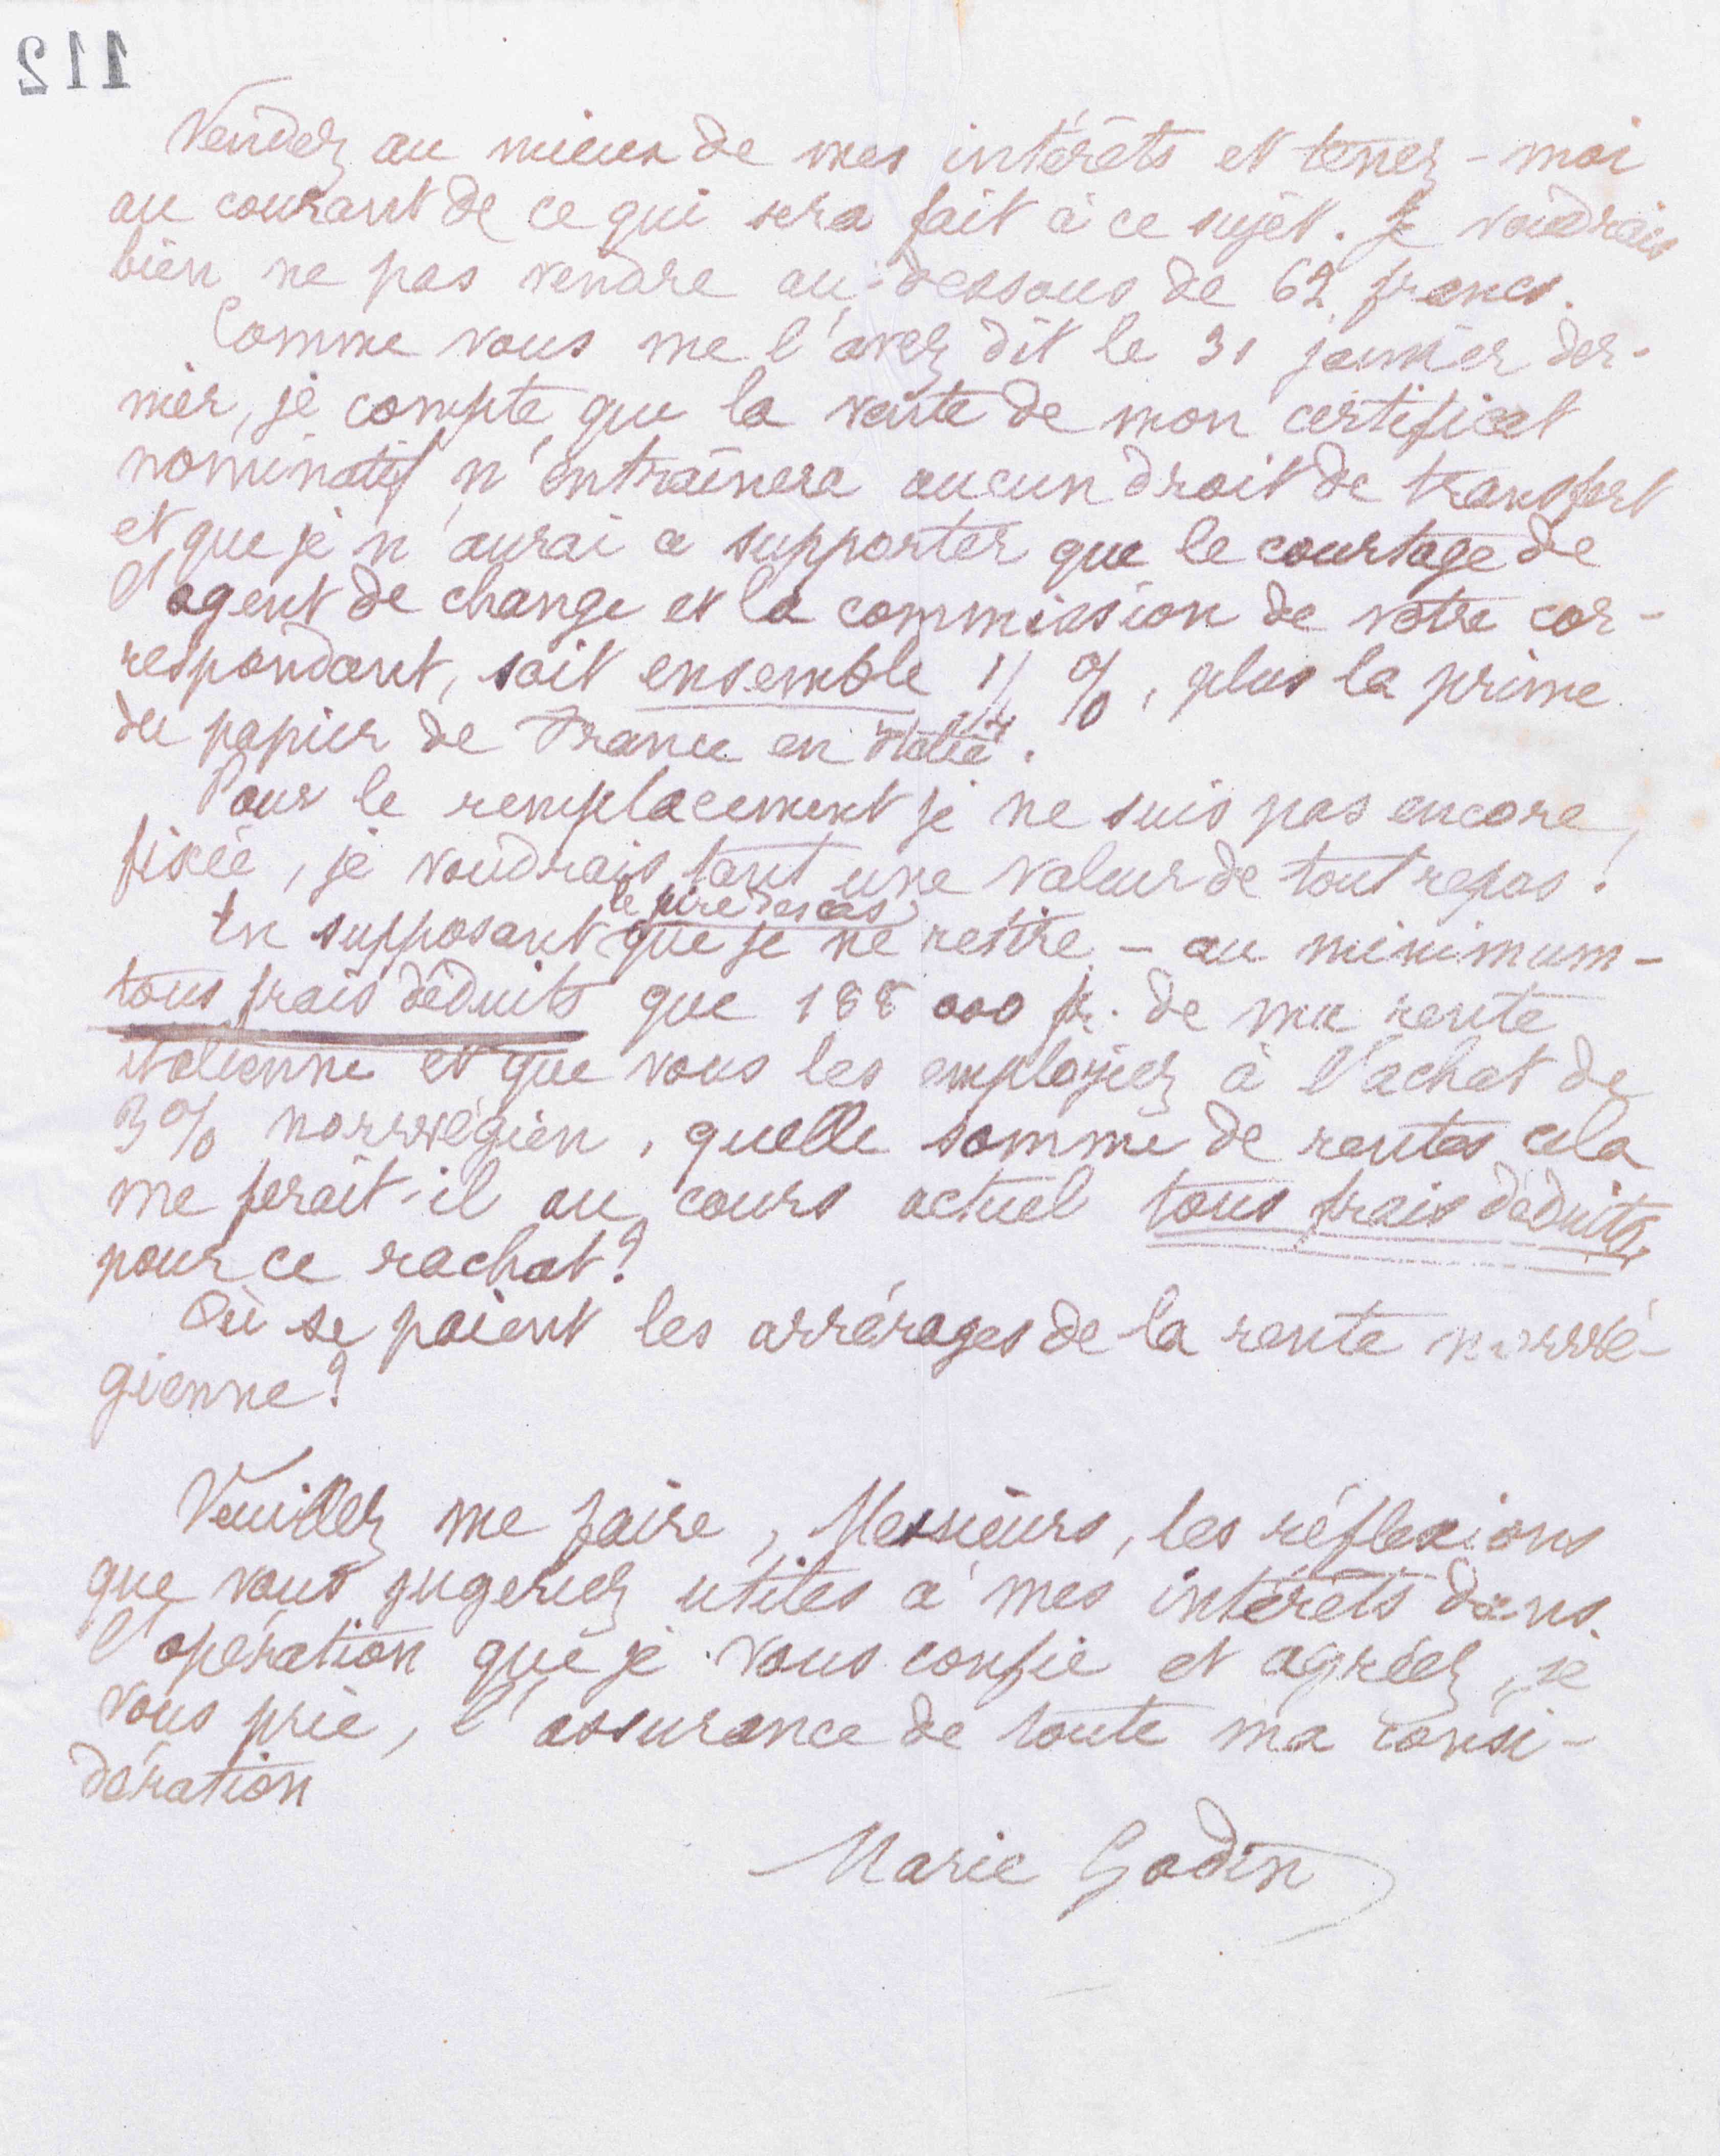 112
Vendez au mieux de mes intérêts et tenez-moi
au courant de ce qui sera fait à ce sujet. Je voudrais
bien ne pas vendre au-dessous de 62 francs.
Comme vous me l'avez dit le 31 janvier der-
nier, je compte que la vente de mon certificat
nominatif n'entraînera aucun droit de transfert
et que je n'aurai à supporter que le courtage de
l'agent de change et la commission de votre cor-
respondant, soit ensemble %, plus la prime
du papier de France en Italie.
Pour le remplacement je ne suis pas encore
fixée, je voudrais tant une valeur de tout repos!
le pire des cas
En supposant que je ne retire - au minimum -
tous frais déduits que 188 000 fr. de ma rente
italienne et que vous les employiez à l'achat de
3% norwégien, quelle somme de rentes cela
me ferait-il au cours actuel tous frais déduits
pour ce rachat?
Où se paient les arrérages de la rente norwé-
gienne?
Veuillez me faire, Messieurs, les réflexions
que vous jugeriez utiles à mes intérêts dans
l'opération que je vous confie et agréez, je
vous prie, l'assurance de toute ma consi-
dération
Marie Godin